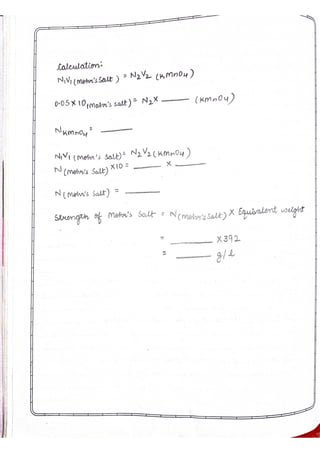 Calculation:
N₁V₁ (Mohr's Salt) = N₂V₂ (KMnO₄)
0.05 X 10 (Mohr's salt) = N₂X ____ (KMnO₄)
N KMnO₄ = ____
N₁V₁ (Mohr's Salt) = N₂V₂ (KMnO₄)
N (Mohr's Salt) X10 = ____ X ____
N (Mohr's Salt) = ____
Strength of Mohr's Salt = N (Mohr's Salt) X Equivalent weight
= ____ X392
= ____ g/l